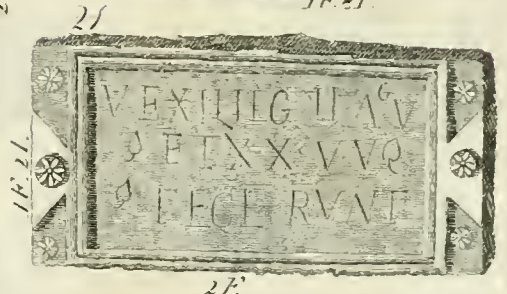 21
1F. 21.
1F. 21.
VEXILLLEG II AVG
ET XX V V
FECERVNT
2F.